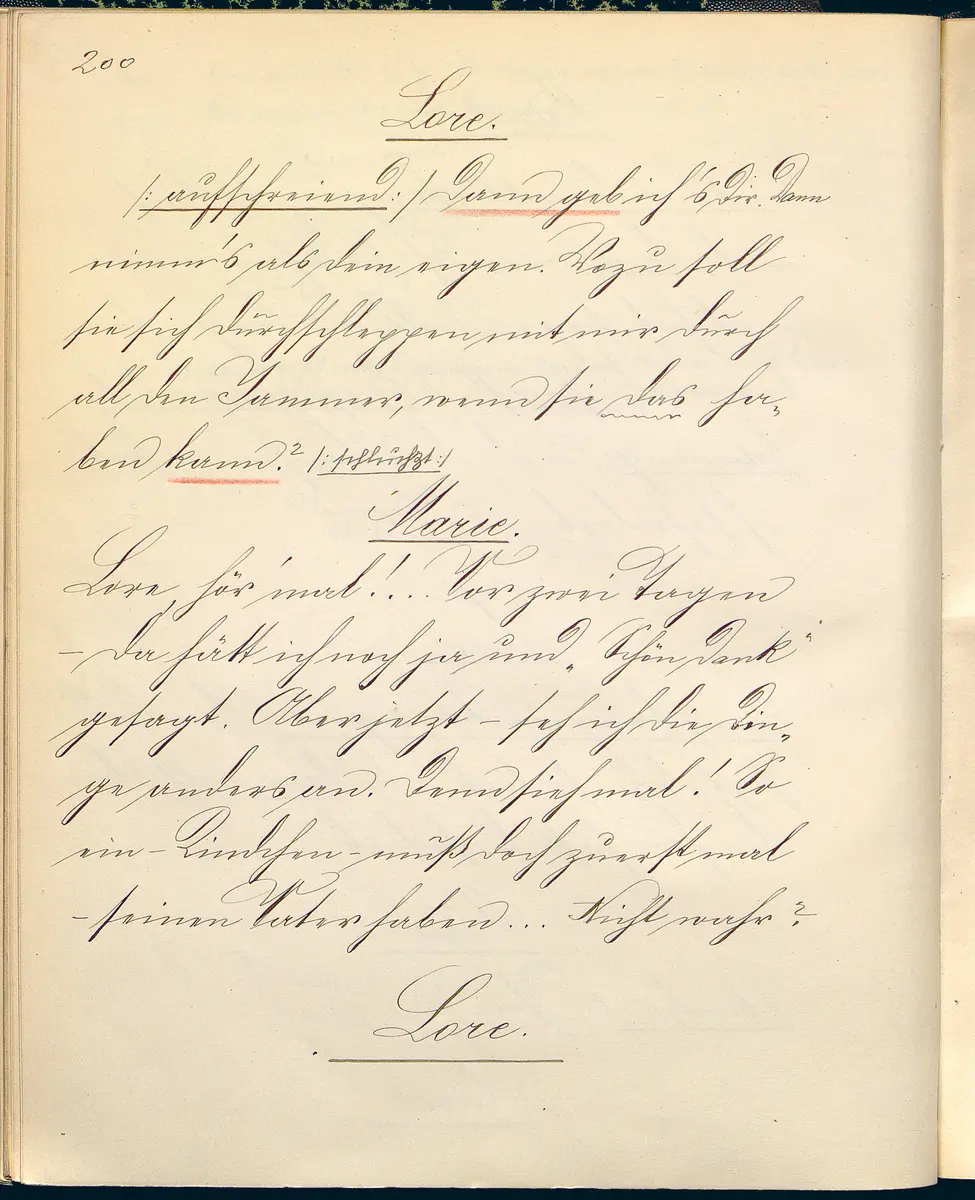 200
Lore.
/: aufschreiend :/ Dann geb ich's Dir. Dann
nimm's als dein eigen. Wozu soll
sie sich durchschleppen mit mir durch
all den Jammer, wenn sie das ha-
ben kann? /: schluchzt :/
Marie.
Lore, hör' mal!... Vor zwei Tagen
– da hätt ich noch ja und „Schön Dank“
gesagt. Aber jetzt – seh ich die Din-
ge anders an. Denn sieh mal! So
ein – Kindchen – muß doch zuerst mal
– seinen Vater haben... Nicht wahr?
Lore.